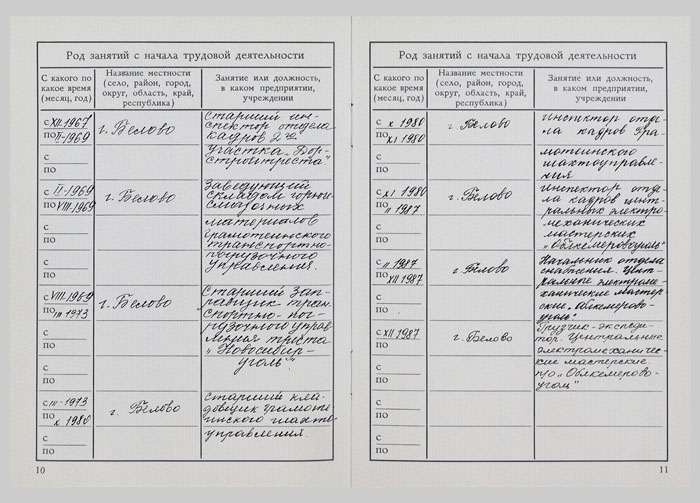 Род занятий с начала трудовой деятельности
С какого по какое время (месяц, год)
Название местности (село, район, город, округ, область, край, республика)
Занятие или должность, в каком предприятии, учреждении
с XII.1967
по II-1969
г. Белово
Старший ин-
спектор отдела
кадров 2го
участка „Дор-
стройтреста"
с
по
с II-1969
по VIII-1969
г. Белово
Заведующий
складом горюче-
смазочных
материалов
Грамотеинского
транспортно-
погрузочного
управления.
с
по
с
по
с VIII-1969
по III 1973
г. Белово
Старший Зап-
равщик тран-
спортно-пог-
рузочного управ-
ления треста
„Новосибир-
уголь".
с
по
с
по
с III-1973
по X 1980
г. Белово
Старший кла-
довщик Грамоте-
инского шахто-
управления.
с
по
10
Род занятий с начала трудовой деятельности
С какого по какое время (месяц, год)
Название местности (село, район, город, округ, область, край, республика)
Занятие или должность, в каком предприятии, учреждении
с X 1980
по XI 1980
г. Белово
инспектор отде-
ла кадров Гра-
мотеинского
шахтоуправле-
ния
с
по
с XI 1980
по II 1987
г. Белово
инспектор отде-
ла кадров Цент-
ральных электро-
механических
мастерских
„Облкемеровоуголь"
с
по
с II 1987
по XII 1987
г. Белово
Начальник отдела
снабжения. Цент-
ральные электроме-
ханические мастер-
ские „Облкемерово-
уголь"
с
по
с XII 1987
по
г. Белово
Грузчик-экспеди-
тор. Центральные
электромеханичес-
кие мастерские
п/о „Облкемерово-
уголь"
с
по
с
по
с
по
11